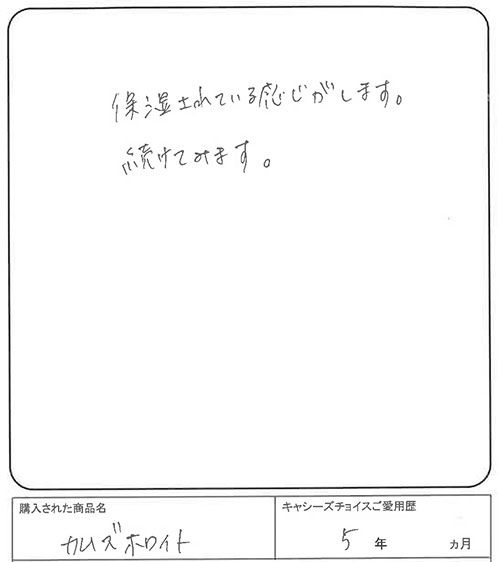 保湿されている感じがします。
続けてみます。
購入された商品名
カムズホワイト
キャシーズチョイスご愛用歴
5 年 カ月